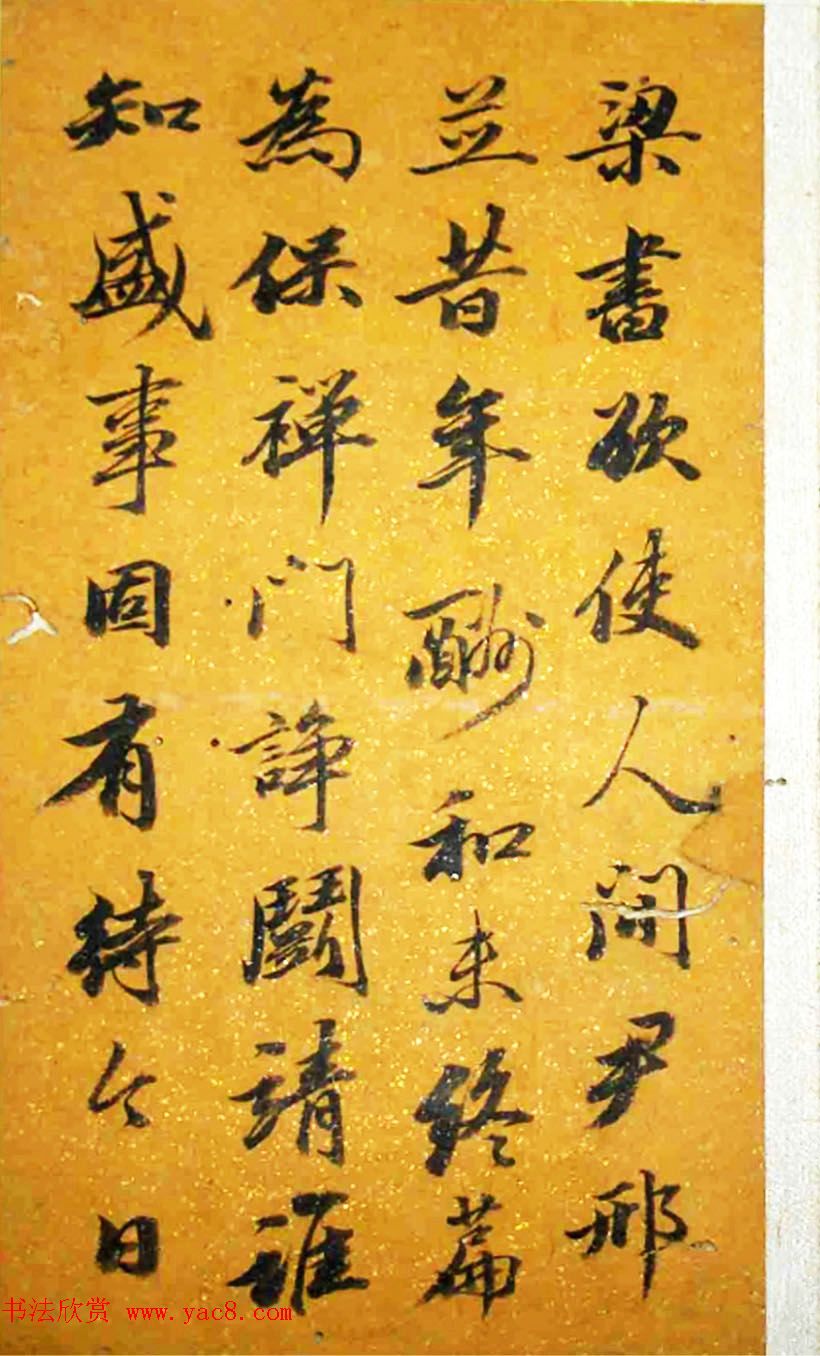 梁書欲使人間尹邢
並昔年酬和未終篇
為保禪門諍鬪請誰
知盛事固有待今日
书法欣赏 www.yac8.com